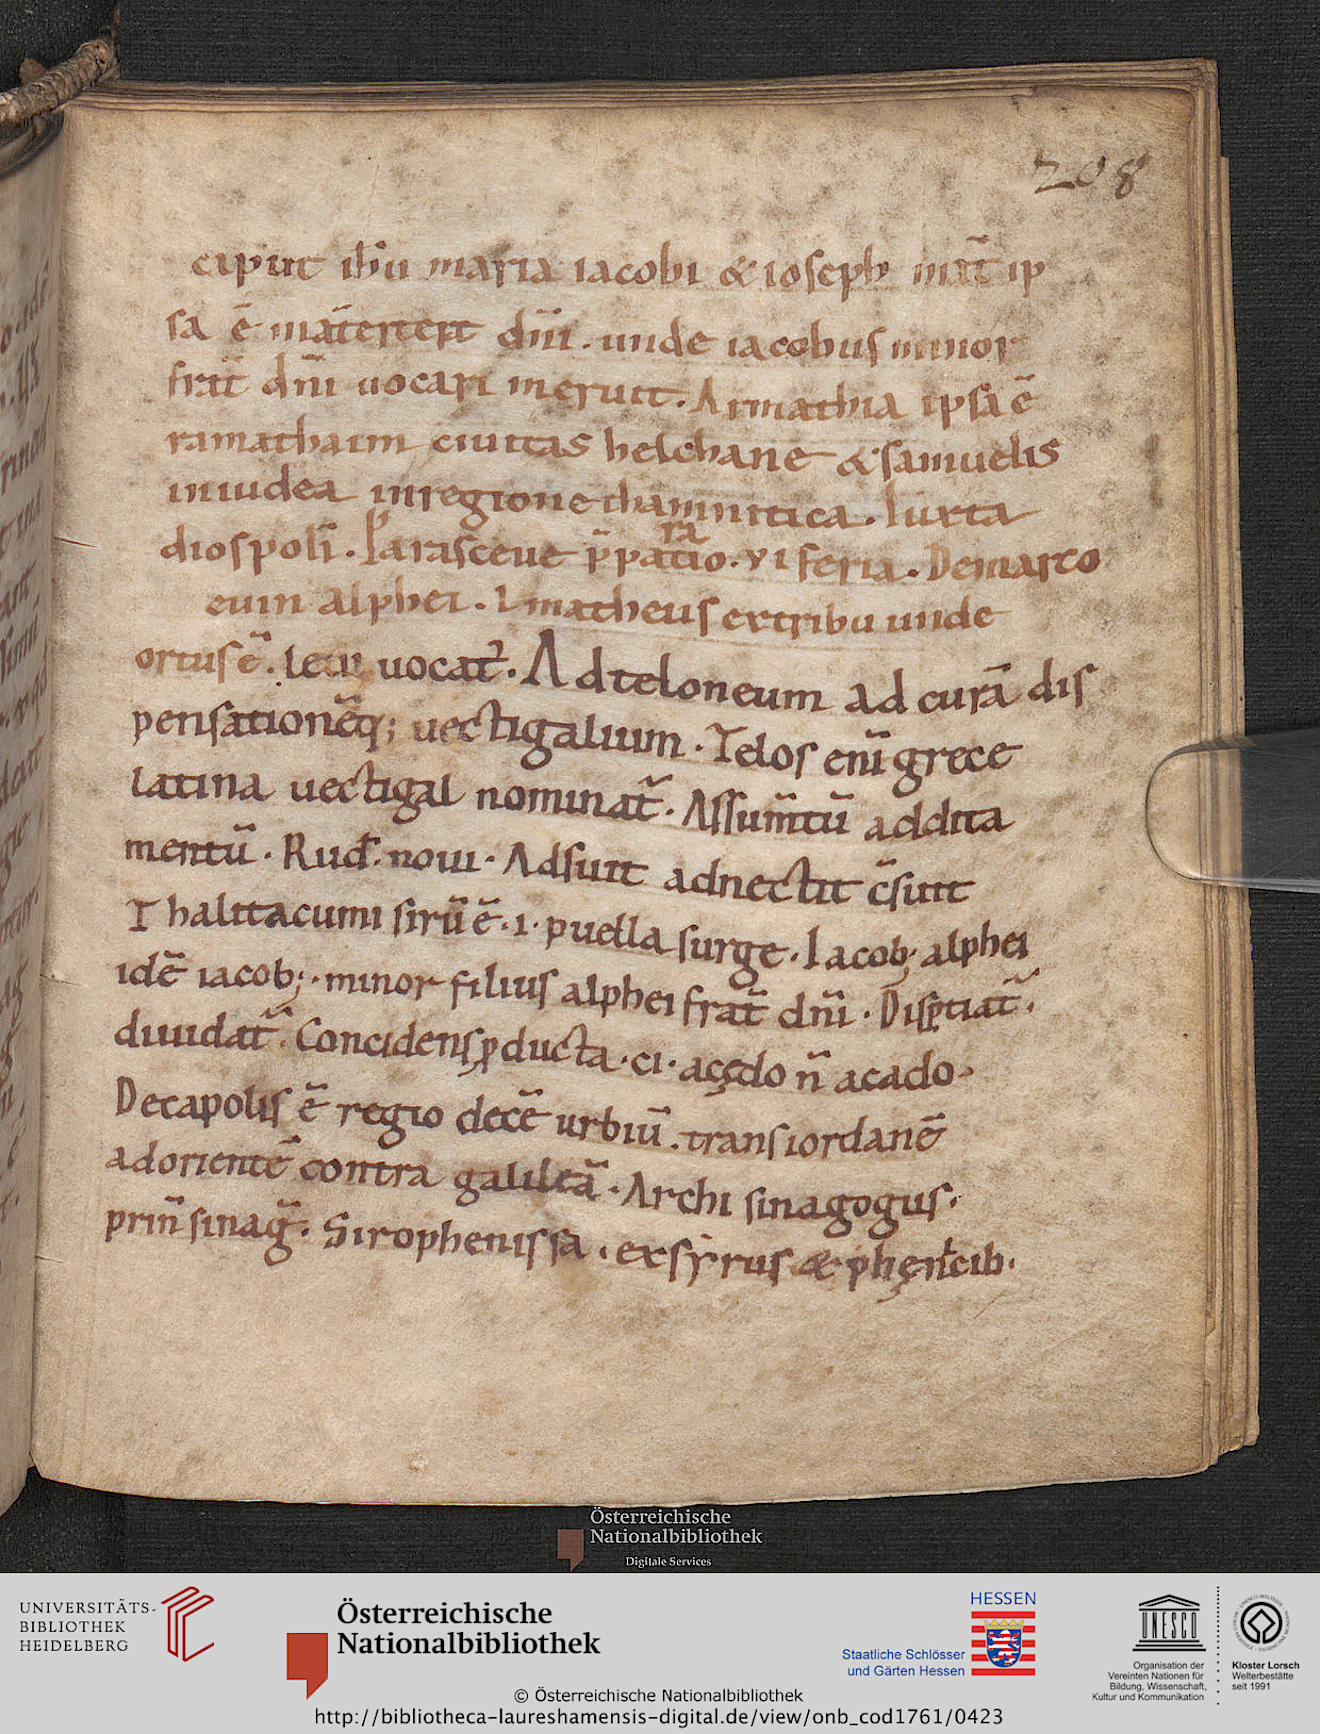 208
caput ihu maria iacobi & ioseph mat̄ ip
sa ē mat̄ertera dn̄i. unde iacobus minor
frat̄ dn̄i uocari meruit. Armathia ipsa ē
ramathaim ciuitas helchane & samuelis
in iudea in regione thamnitica. Iuxta
ra
diospolī. Parasceue p̄patio. vi feria. De marco
euin alphei. I matheus ex tribu unde
ortus ē. leui uocat̄. Ad teloneum ad curā dis
pensationēq; uectigalium. Telos enī grece
latina uectigal nominat̄. Assum̄tū addita
mentū. Rud. noui. Adsuit adnectit c̄suit
Thalitacumi sirū ē. i. puella surge. Iacob; alphei
idē iacob;. minor filius alphei frat̄ dn̄i. Disptiat̄.
diuidat̄. Concidens pducta. ci. acędo n̄ acado.
Decapolis ē regio decē urbiū. trans iordanē
ad orientē contra galileā. Archi sinagogus.
prin̄ sinaḡ. Sirophenissa. ex syrus & phęnicib.
Österreichische
Nationalbibliothek
Digitale Services
UNIVERSITÄTS-
BIBLIOTHEK
HEIDELBERG
Österreichische
Nationalbibliothek
HESSEN
Staatliche Schlösser
und Gärten Hessen
UNESCO
Organisation der
Vereinten Nationen für
Bildung, Wissenschaft,
Kultur und Kommunikation
Kloster Lorsch
Welterbestätte
seit 1991
© Österreichische Nationalbibliothek
http://bibliotheca-laureshamensis-digital.de/view/onb_cod1761/0423